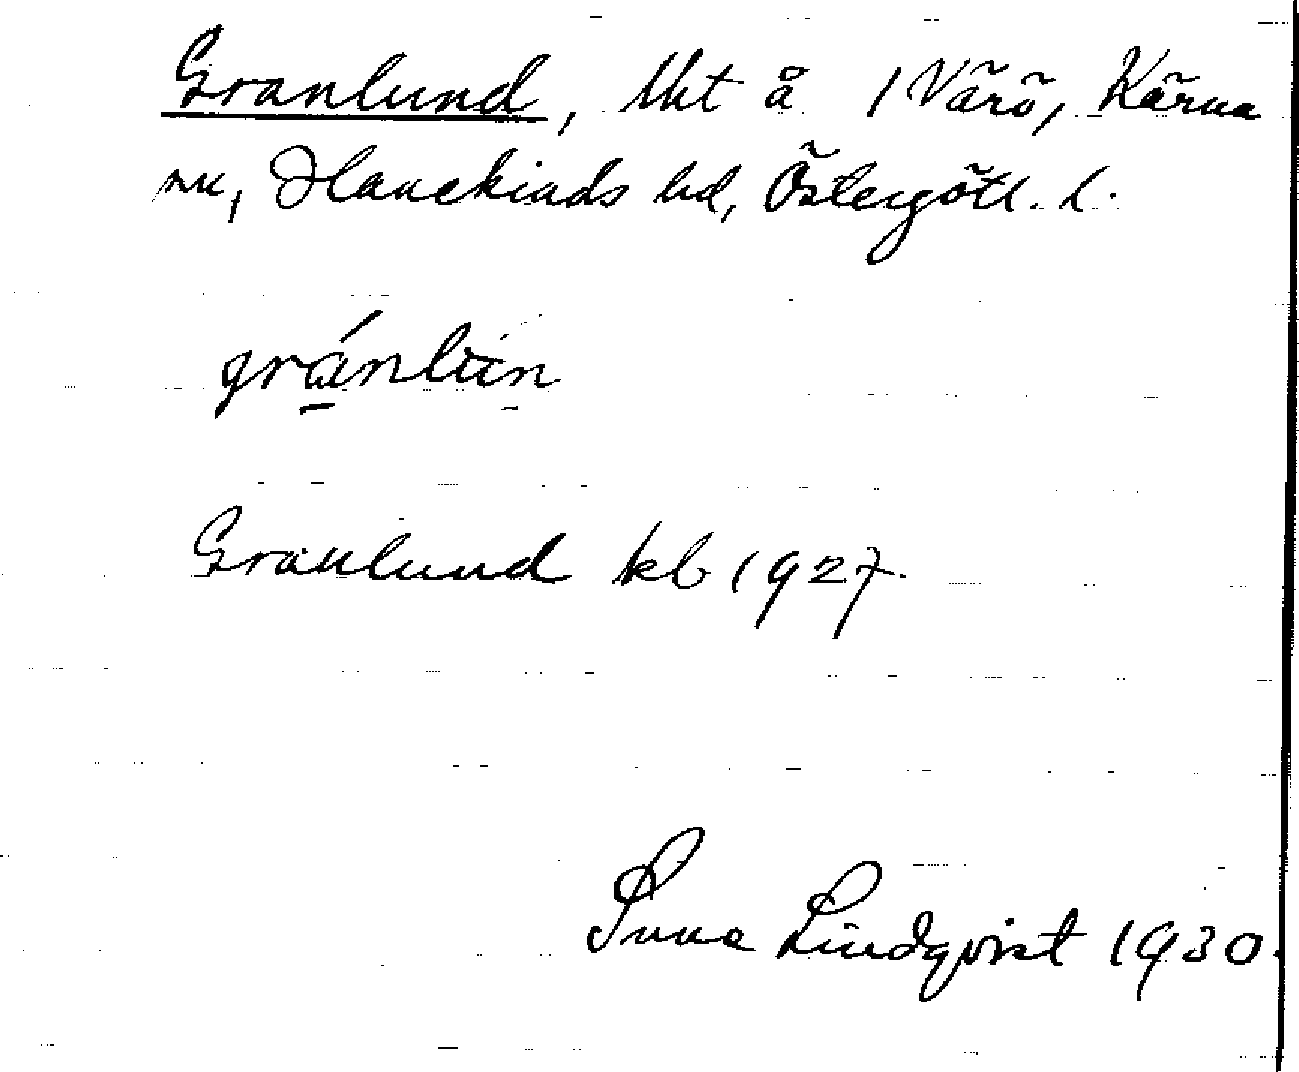 Granlund, lht å 1 Värö, Kärna
sn, Hanekinds hd, Östergötl. l.
gránlun
Granlund kb 1927.
Sune Lindqvist 1930.